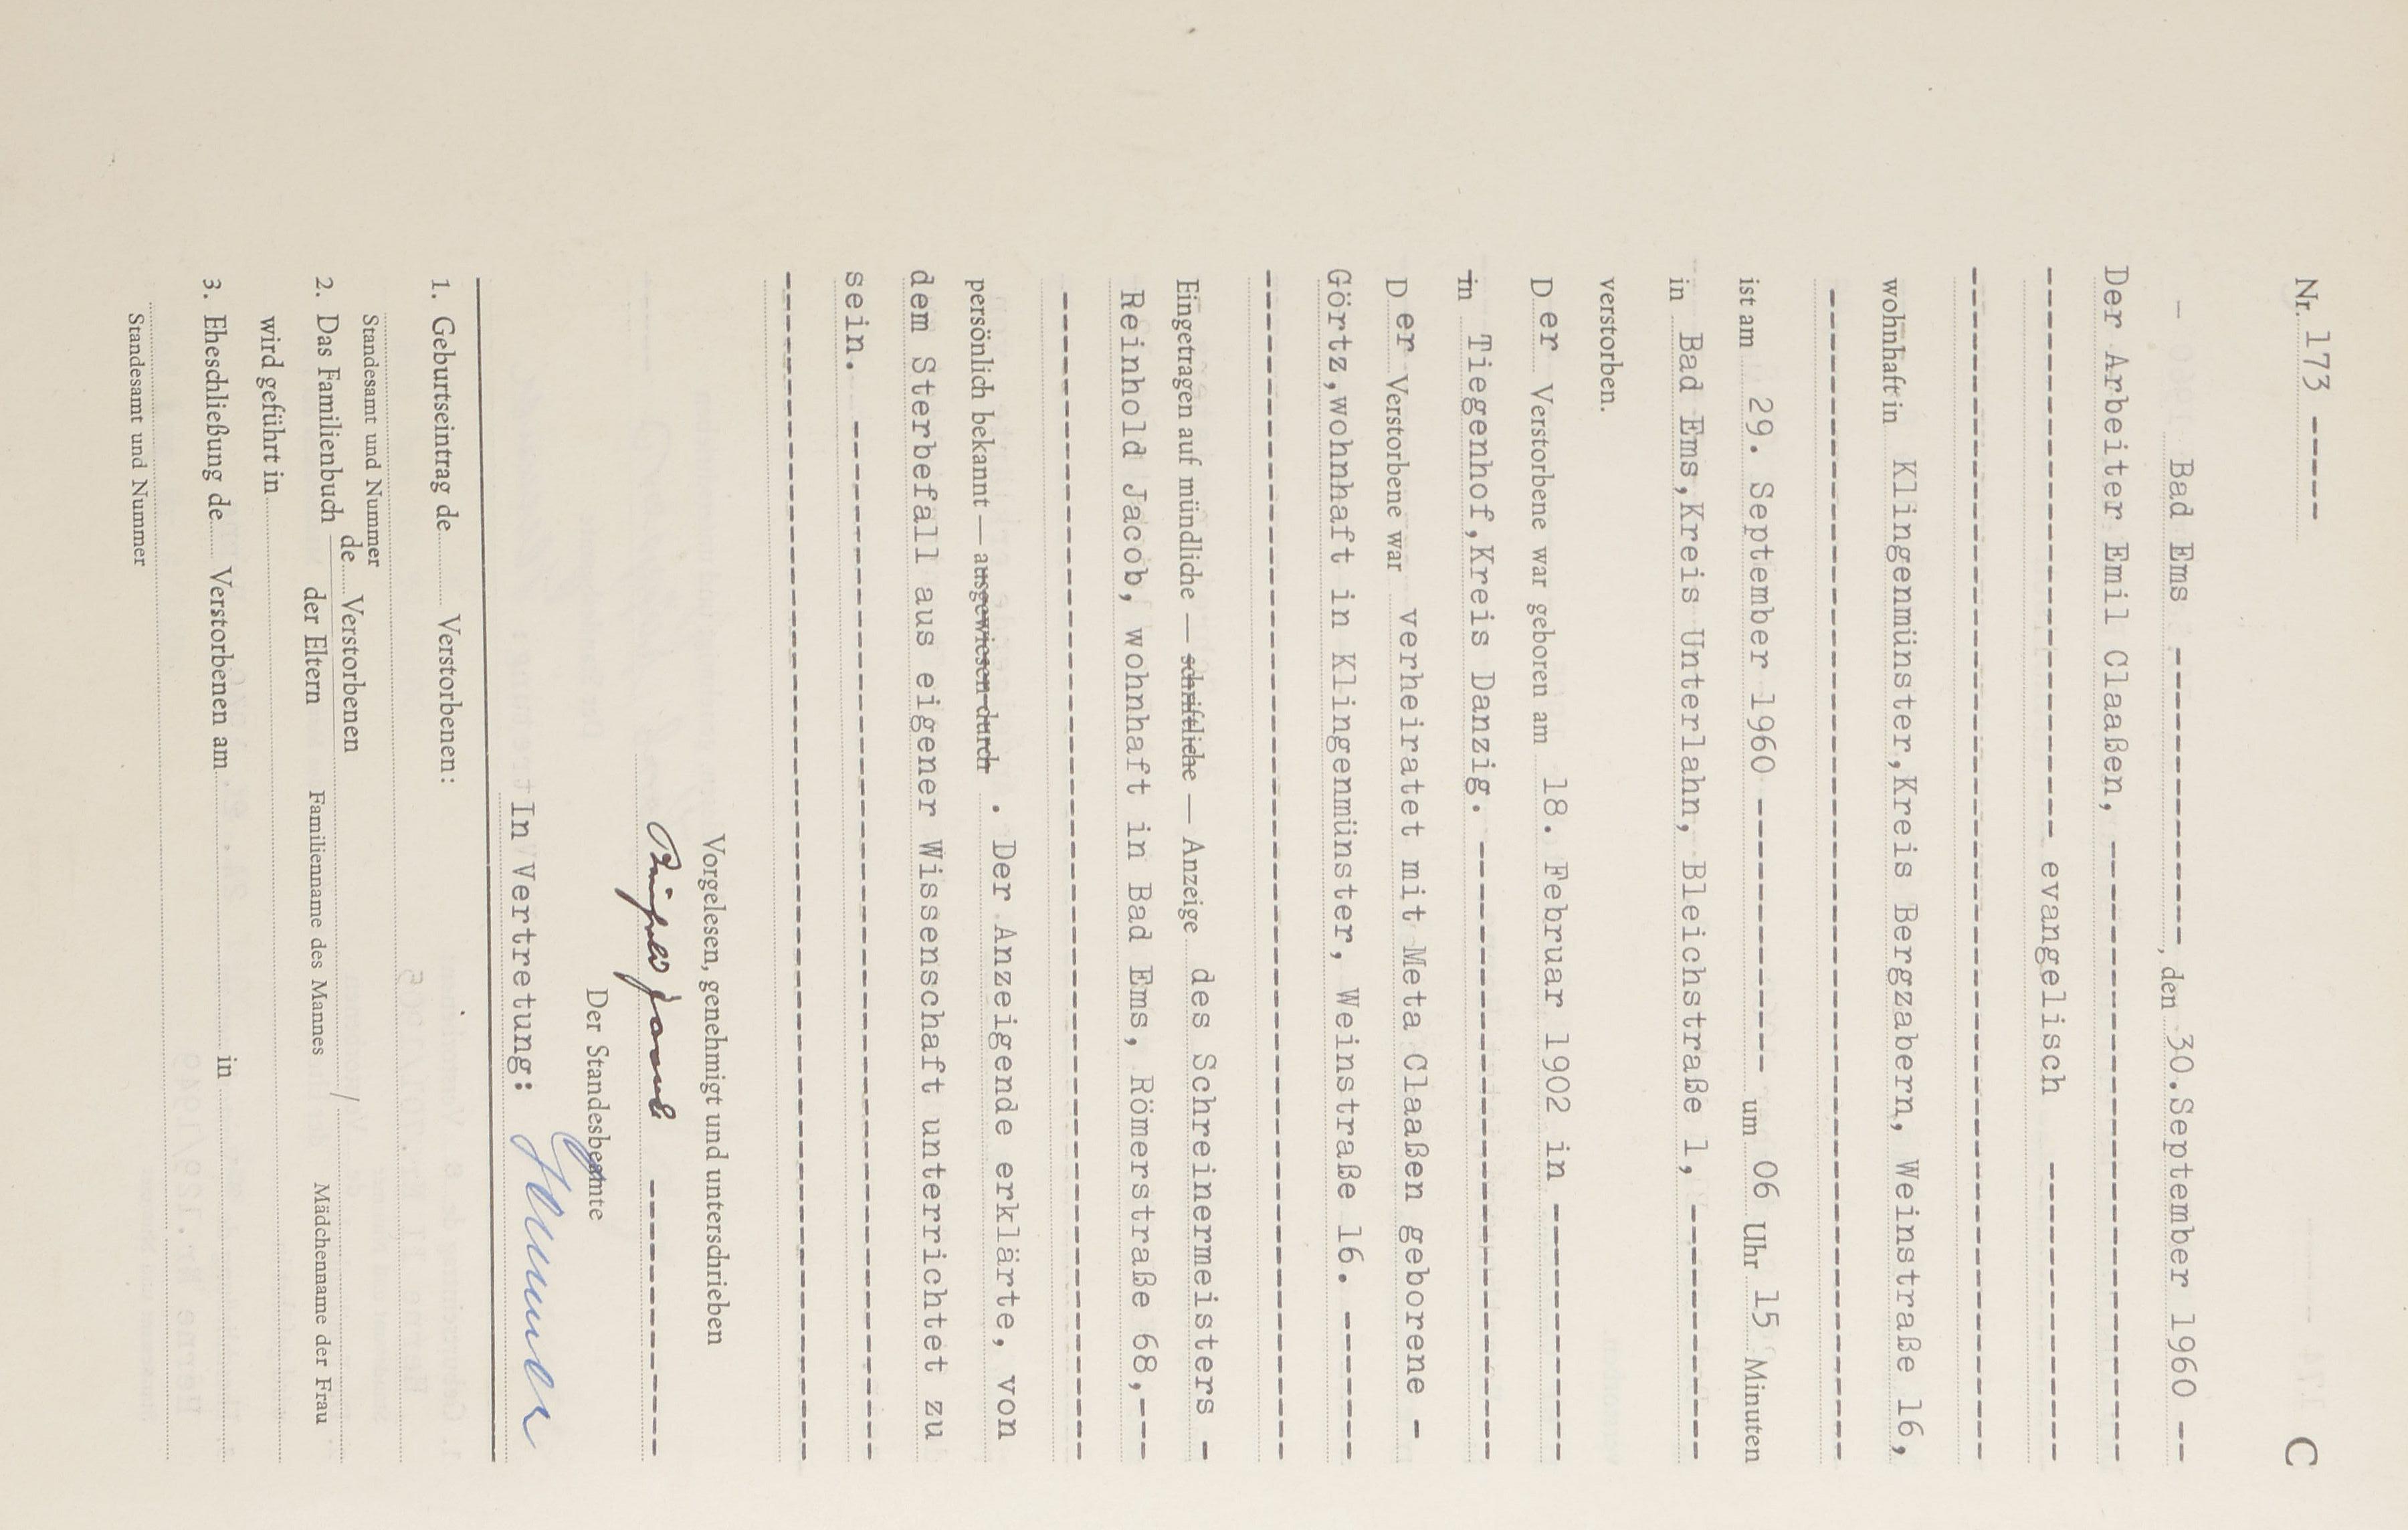 Nr. 173 ----- C
- Bad Ems -------------, den 30.September 1960 --
Der Arbeiter Emil Claaßen, --------------------------
------------------------ evangelisch -------------
--------------------------------------------------
wohnhaft in Klingenmünster,Kreis Bergzabern, Weinstraße 16,
--------------------------------------------------
ist am 29. September 1960 ------------ um 06 Uhr 15 Minuten
in Bad Ems,Kreis Unterlahn, Bleichstraße 1, -----------
verstorben.
D er Verstorbene war geboren am 18. Februar 1902 in -----------
in Tiegenhof,Kreis Danzig. --------------------------
D er Verstorbene war verheiratet mit Meta Claaßen geborene -
Görtz,wohnhaft in Klingenmünster, Weinstraße 16. ------
--------------------------------------------------
Eingetragen auf mündliche — schriftliche — Anzeige des Schreinermeisters -
Reinhold Jacob, wohnhaft in Bad Ems, Römerstraße 68,---
--------------------------------------------------
persönlich bekannt — ausgewiesen durch . Der Anzeigende erklärte, von
dem Sterbefall aus eigener Wissenschaft unterrichtet zu
sein. --------------------------------------------
--------------------------------------------------
Vorgelesen, genehmigt und unterschrieben
Reinhold Jacob ------------
Der Standesbeamte
In Vertretung:
1. Geburtseintrag de Verstorbenen:
Standesamt und Nummer
2. Das Familienbuch de Verstorbenen
der Eltern Familienname des Mannes / Mädchenname der Frau
wird geführt in
3. Eheschließung de Verstorbenen am in
Standesamt und Nummer